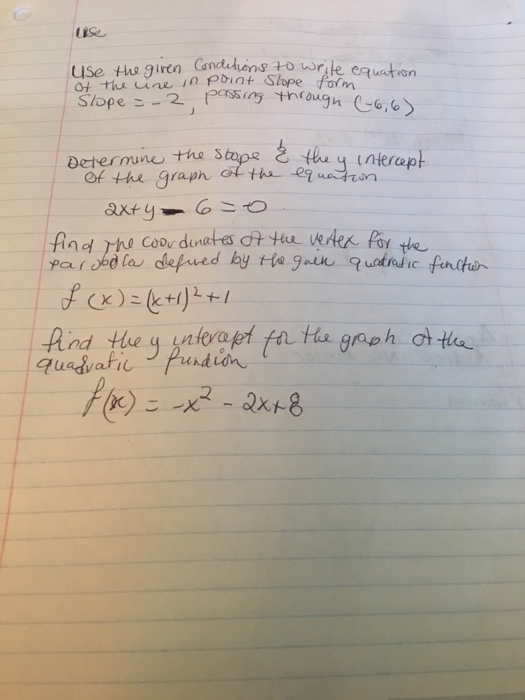 use
Use the given Conditions to write equation
of the line in point slope form
Slope = -2, passing through (-6,6)
Determine the slope & the y intercept
of the graph of the equation
2x+y - 6 = 0
find the coordinates of the vertex for the
parabola defined by the given quadratic function
f(x) = (x+1)² + 1
find the y intercept for the graph of the
quadratic function
f(x) = -x² - 2x+8